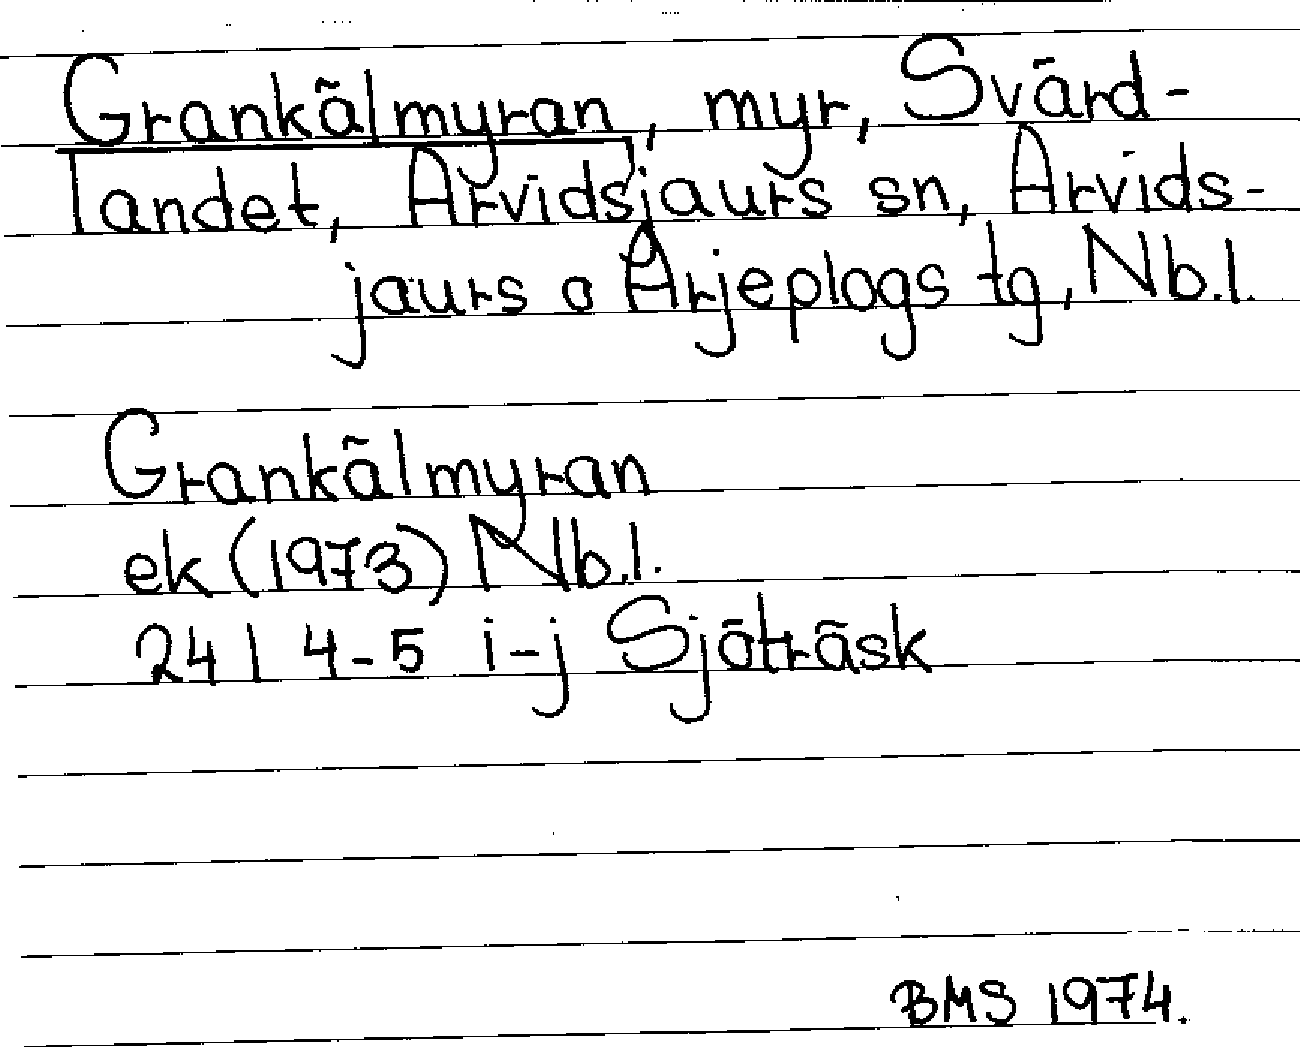 Grankälmyran, myr, Svärd-
landet, Arvidsjaurs sn, Arvids-
jaurs o Arjeplogs tg, Nb.l.
Grankälmyran
ek (1973) Nb.l.
24 I 4-5 i-j Sjöträsk
BMS 1974.